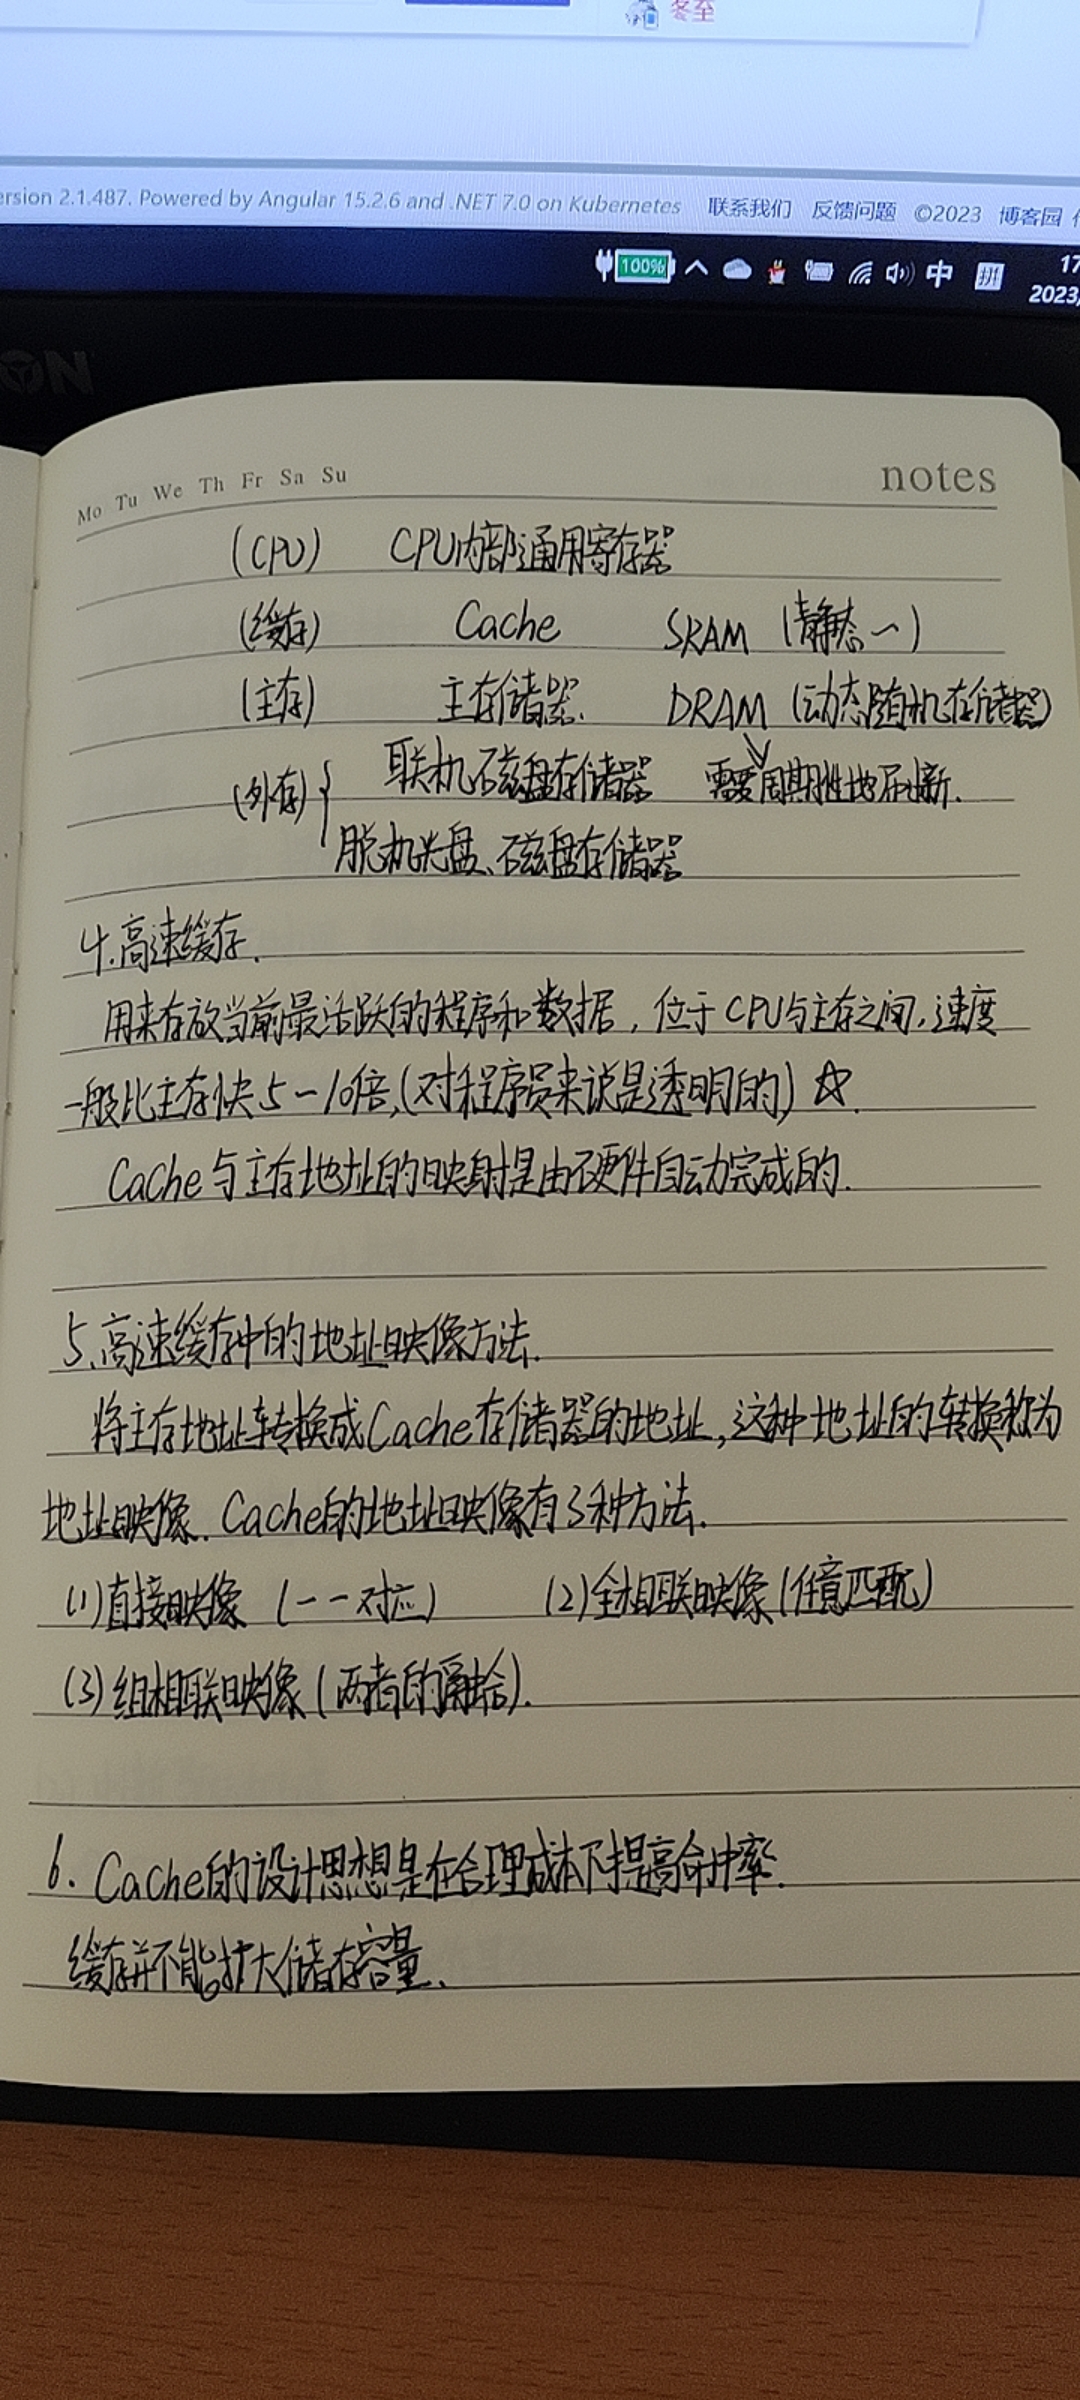 冬至
ersion 2.1.487. Powered by Angular 15.2.6 and .NET 7.0 on Kubernetes 联系我们 反馈问题 ©2023 博客园
100% 中 拼 17
2023/
ON
Mo Tu We Th Fr Sa Su notes
(CPU) CPU内部通用寄存器
(缓存) Cache SRAM (静态~)
(主存) 主存储器. DRAM (动态随机存储器)
(外存) { 联机磁盘存储器 需要周期性地刷新.
脱机光盘、磁盘存储器
4.高速缓存.
用来存放当前最活跃的程序和数据, 位于CPU与主存之间, 速度
一般比主存快5~10倍,(对程序员来说是透明的) ☆.
Cache与主存地址的映射是由硬件自动完成的.
5.高速缓存中的地址映像方法.
将主存地址转换成Cache存储器的地址,这种地址的转换称为
地址映像. Cache的地址映像有3种方法.
(1)直接映像 (一一对应) (2)全相联映像(任意匹配)
(3)组相联映像(两者的融合).
6. Cache的设计思想是在合理成本下提高命中率.
缓存并不能扩大储存容量.